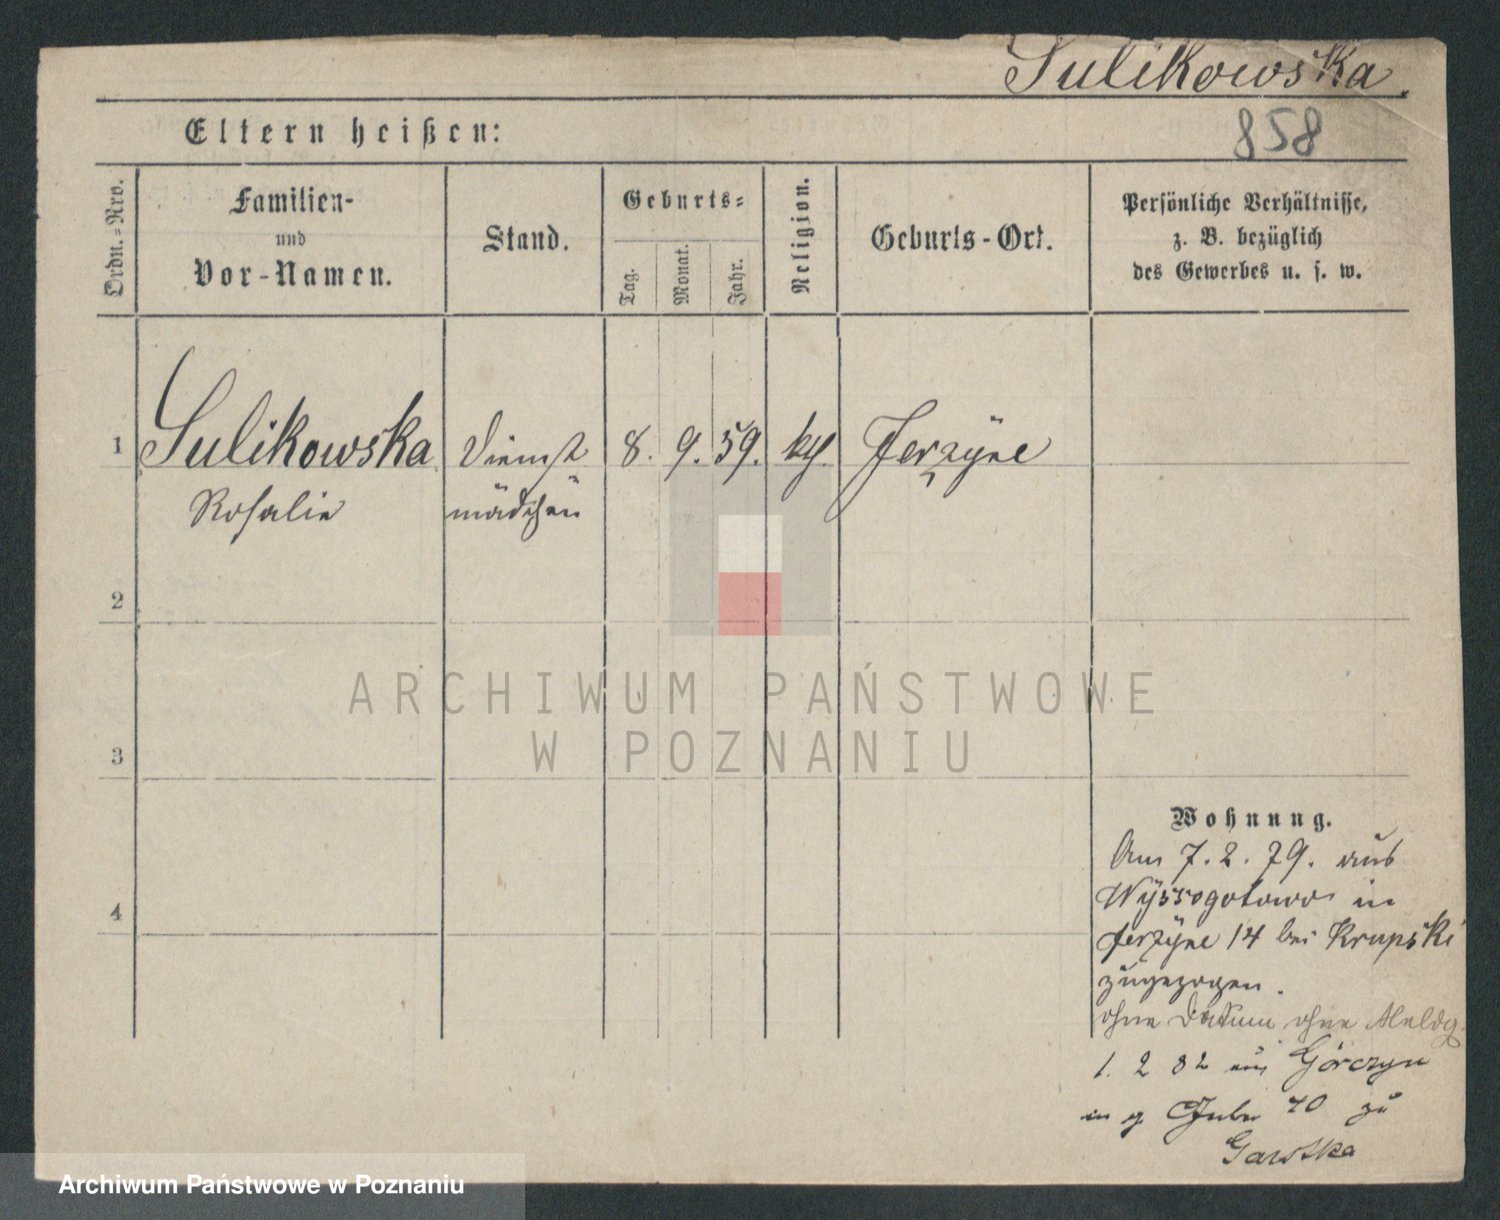 Sulikowska.
858
Eltern heißen:
Ordn.-Nro.
Familien-
und
Vor-Namen.
Stand.
Geburts-
Tag.
Monat.
Jahr.
Religion.
Geburts-Ort.
Persönliche Verhältnisse,
z. B. bezüglich
des Gewerbes u. s. w.
1 Sulikowska Dienst 8. 9. 59. kth. Jerzyne
Rosalie mädchen
2
ARCHIWUM PAŃSTWOWE
W POZNANIU
3
4
Wohnung.
Am 7. 2. 79. aus
Wyssogotowo in
Jerzyne 14 bei Krupski
zugezogen.
ohne Datum ohne Meldg.
1. 2 82 aus Górczyn
in 40 zu
Gawska
Archiwum Państwowe w Poznaniu